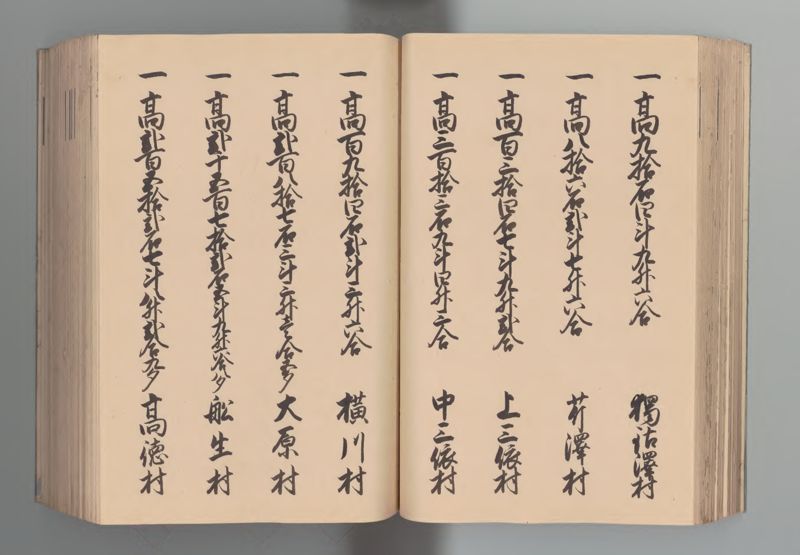 一高九拾石四斗九升六合 獨鈷澤村
一高八拾六石貳斗七升六合 芹澤村
一高百三拾四石七斗九升貳合 上三依村
一高三百拾三石九斗四升三合 中三依村
一高百九拾四石貳斗三升六合 横川村
一高貳百八拾七石三斗三升壱合五夕 大原村
一高貳千五百七拾貳石五斗九升六合八夕 舩生村
一高貳百五拾貳石七斗八升貳合九夕 高徳村